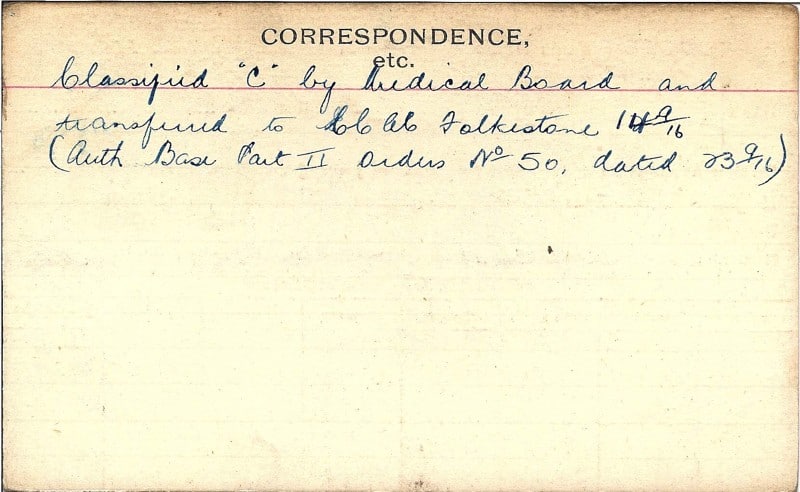 CORRESPONDENCE,
etc.
Classified "C" by Medical Board and
transferred to CCAC Folkestone 14/9/16
(Auth Base Part II Orders No 50, dated 23/9/16)